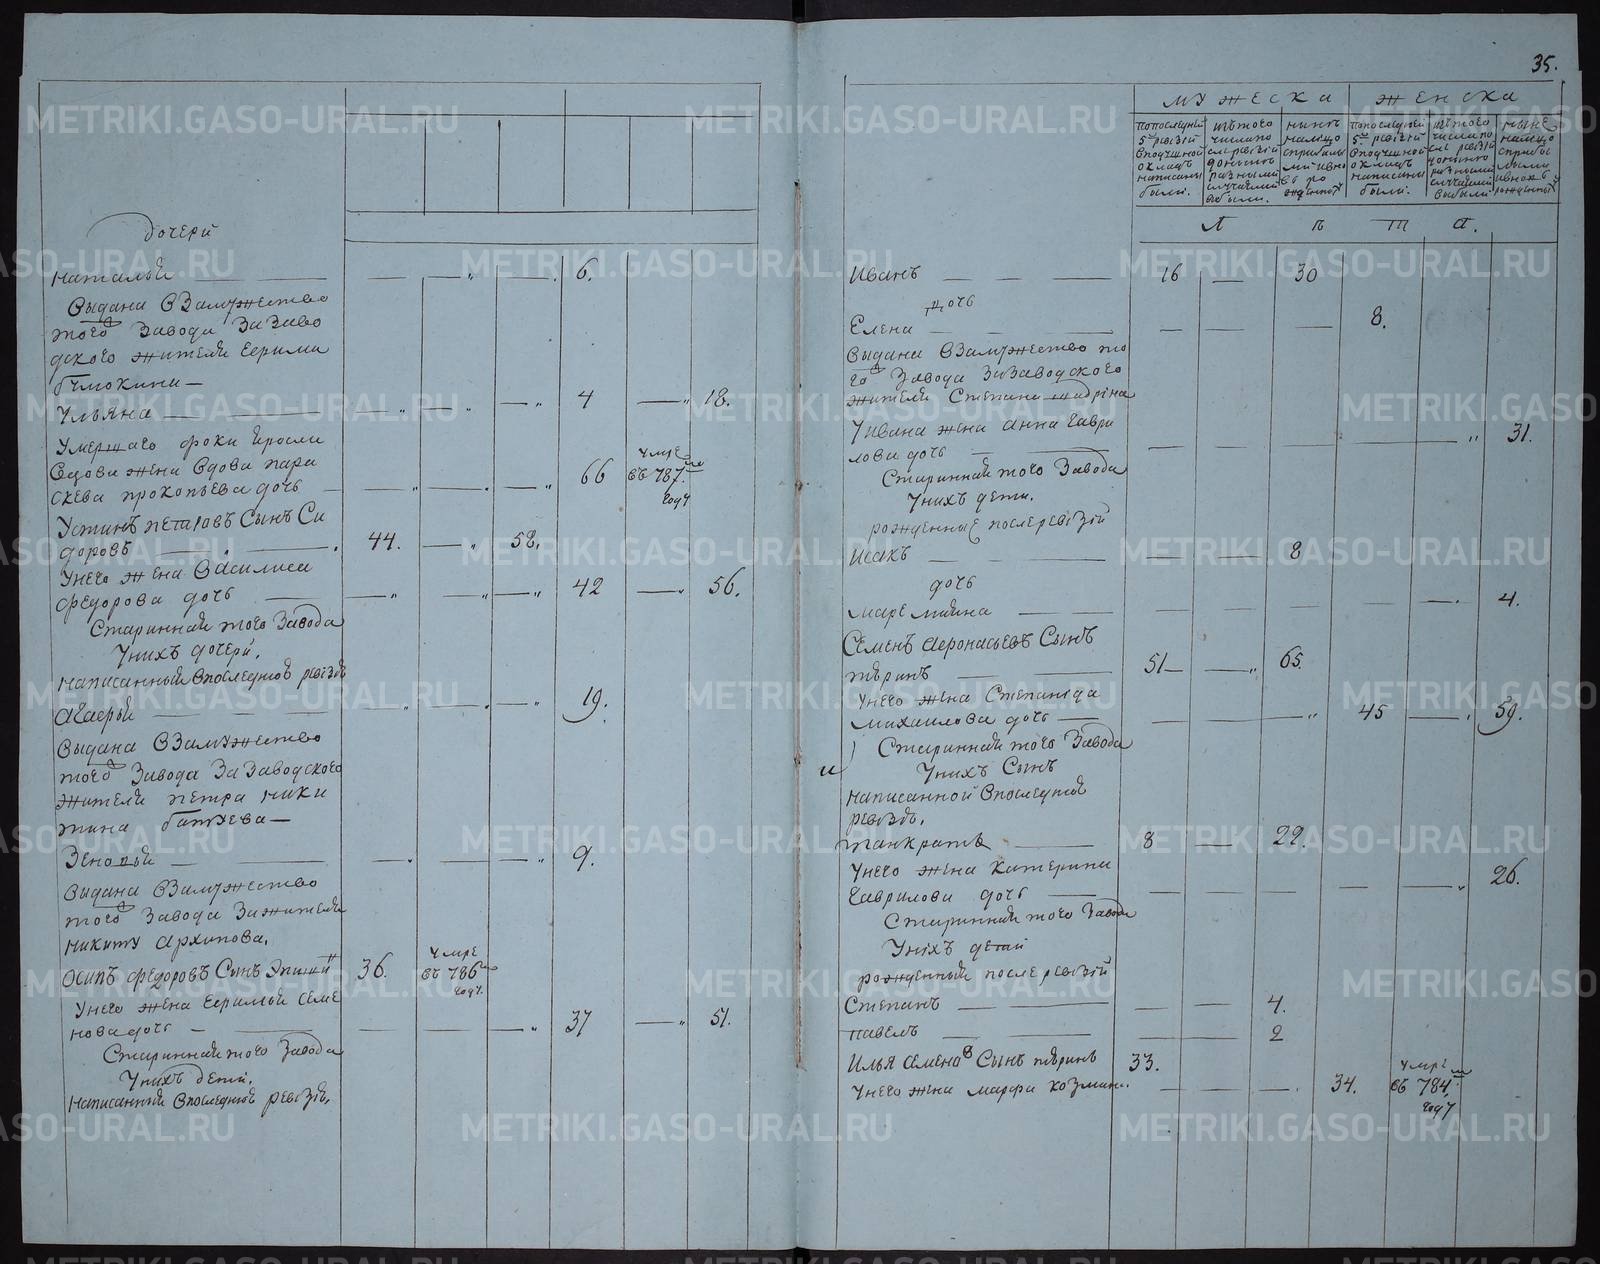 дочери
Наталья — 6.
выдана взамужество
того завода за заво
дского жителя Ефима
Ульяна — 4 — 18.
Умершаго Фоки
вдова жена вдова пара
скева Прокопьева дочь — 66 умре въ 787 м году
Устинъ Петровъ сынъ Си
доровъ — 44. — 58.
Унего жена Василиса
Федорова дочь — 42 — 56.
Старинная того завода
Унихъ дочери.
написанныя впоследней ревизіи
Агафья — 19.
выдана взамужество
того завода за заводского
жителя Петра Ники
тина
Зеновья — 9.
выдана взамужество
того завода за жителя
Никиту Архипова.
Осипъ Федоровъ сынъ 36. умре въ 786 м году
Унего жена Ефимья Семе
нова дочь — 37 — 51.
Старинная того завода
Унихъ дети.
написанныя впоследней ревизіи.
35.
мужеска женска
попоследней 5й ревизіи вподушной окладъ написаны были.
изтого числа после ревизіи доныне разными случаями выбыли.
ныне налицо
попоследней 5й ревизіи вподушной окладъ написаны были.
изтого числа после ревизіи доныне разными случаями выбыли
ныне налицо
Л ѣ т а.
Иванъ — 16 — 30
дочь
Елена — 8.
выдана взамужество то
го завода за заводского
жителя Степана Шадрина
У Ивана жена Анна Гаври
лова дочь — 31.
Старинная того завода
Унихъ дети.
рожденные послеревизіи
Исакъ — 8
дочь
Маремьяна — 4.
Семенъ Афонасьевъ сынъ
51 — 65.
Унего жена Степанида
Михаилова дочь — 45 — 59.
Старинная того завода
Унихъ сынъ
написанной впоследней
ревизіи.
Панкратъ — 8 — 22.
Унего жена Катерина
Гаврилова дочь — 26.
Старинная того завода
Унихъ детей
рожденныя после ревизіи
Степанъ — 4.
Павелъ — 2
Илья Семеновъ сынъ 33.
Унего жена Марфа Козмин. — 34. умре въ 784 м году
METRIKI.GASO-URAL.RU